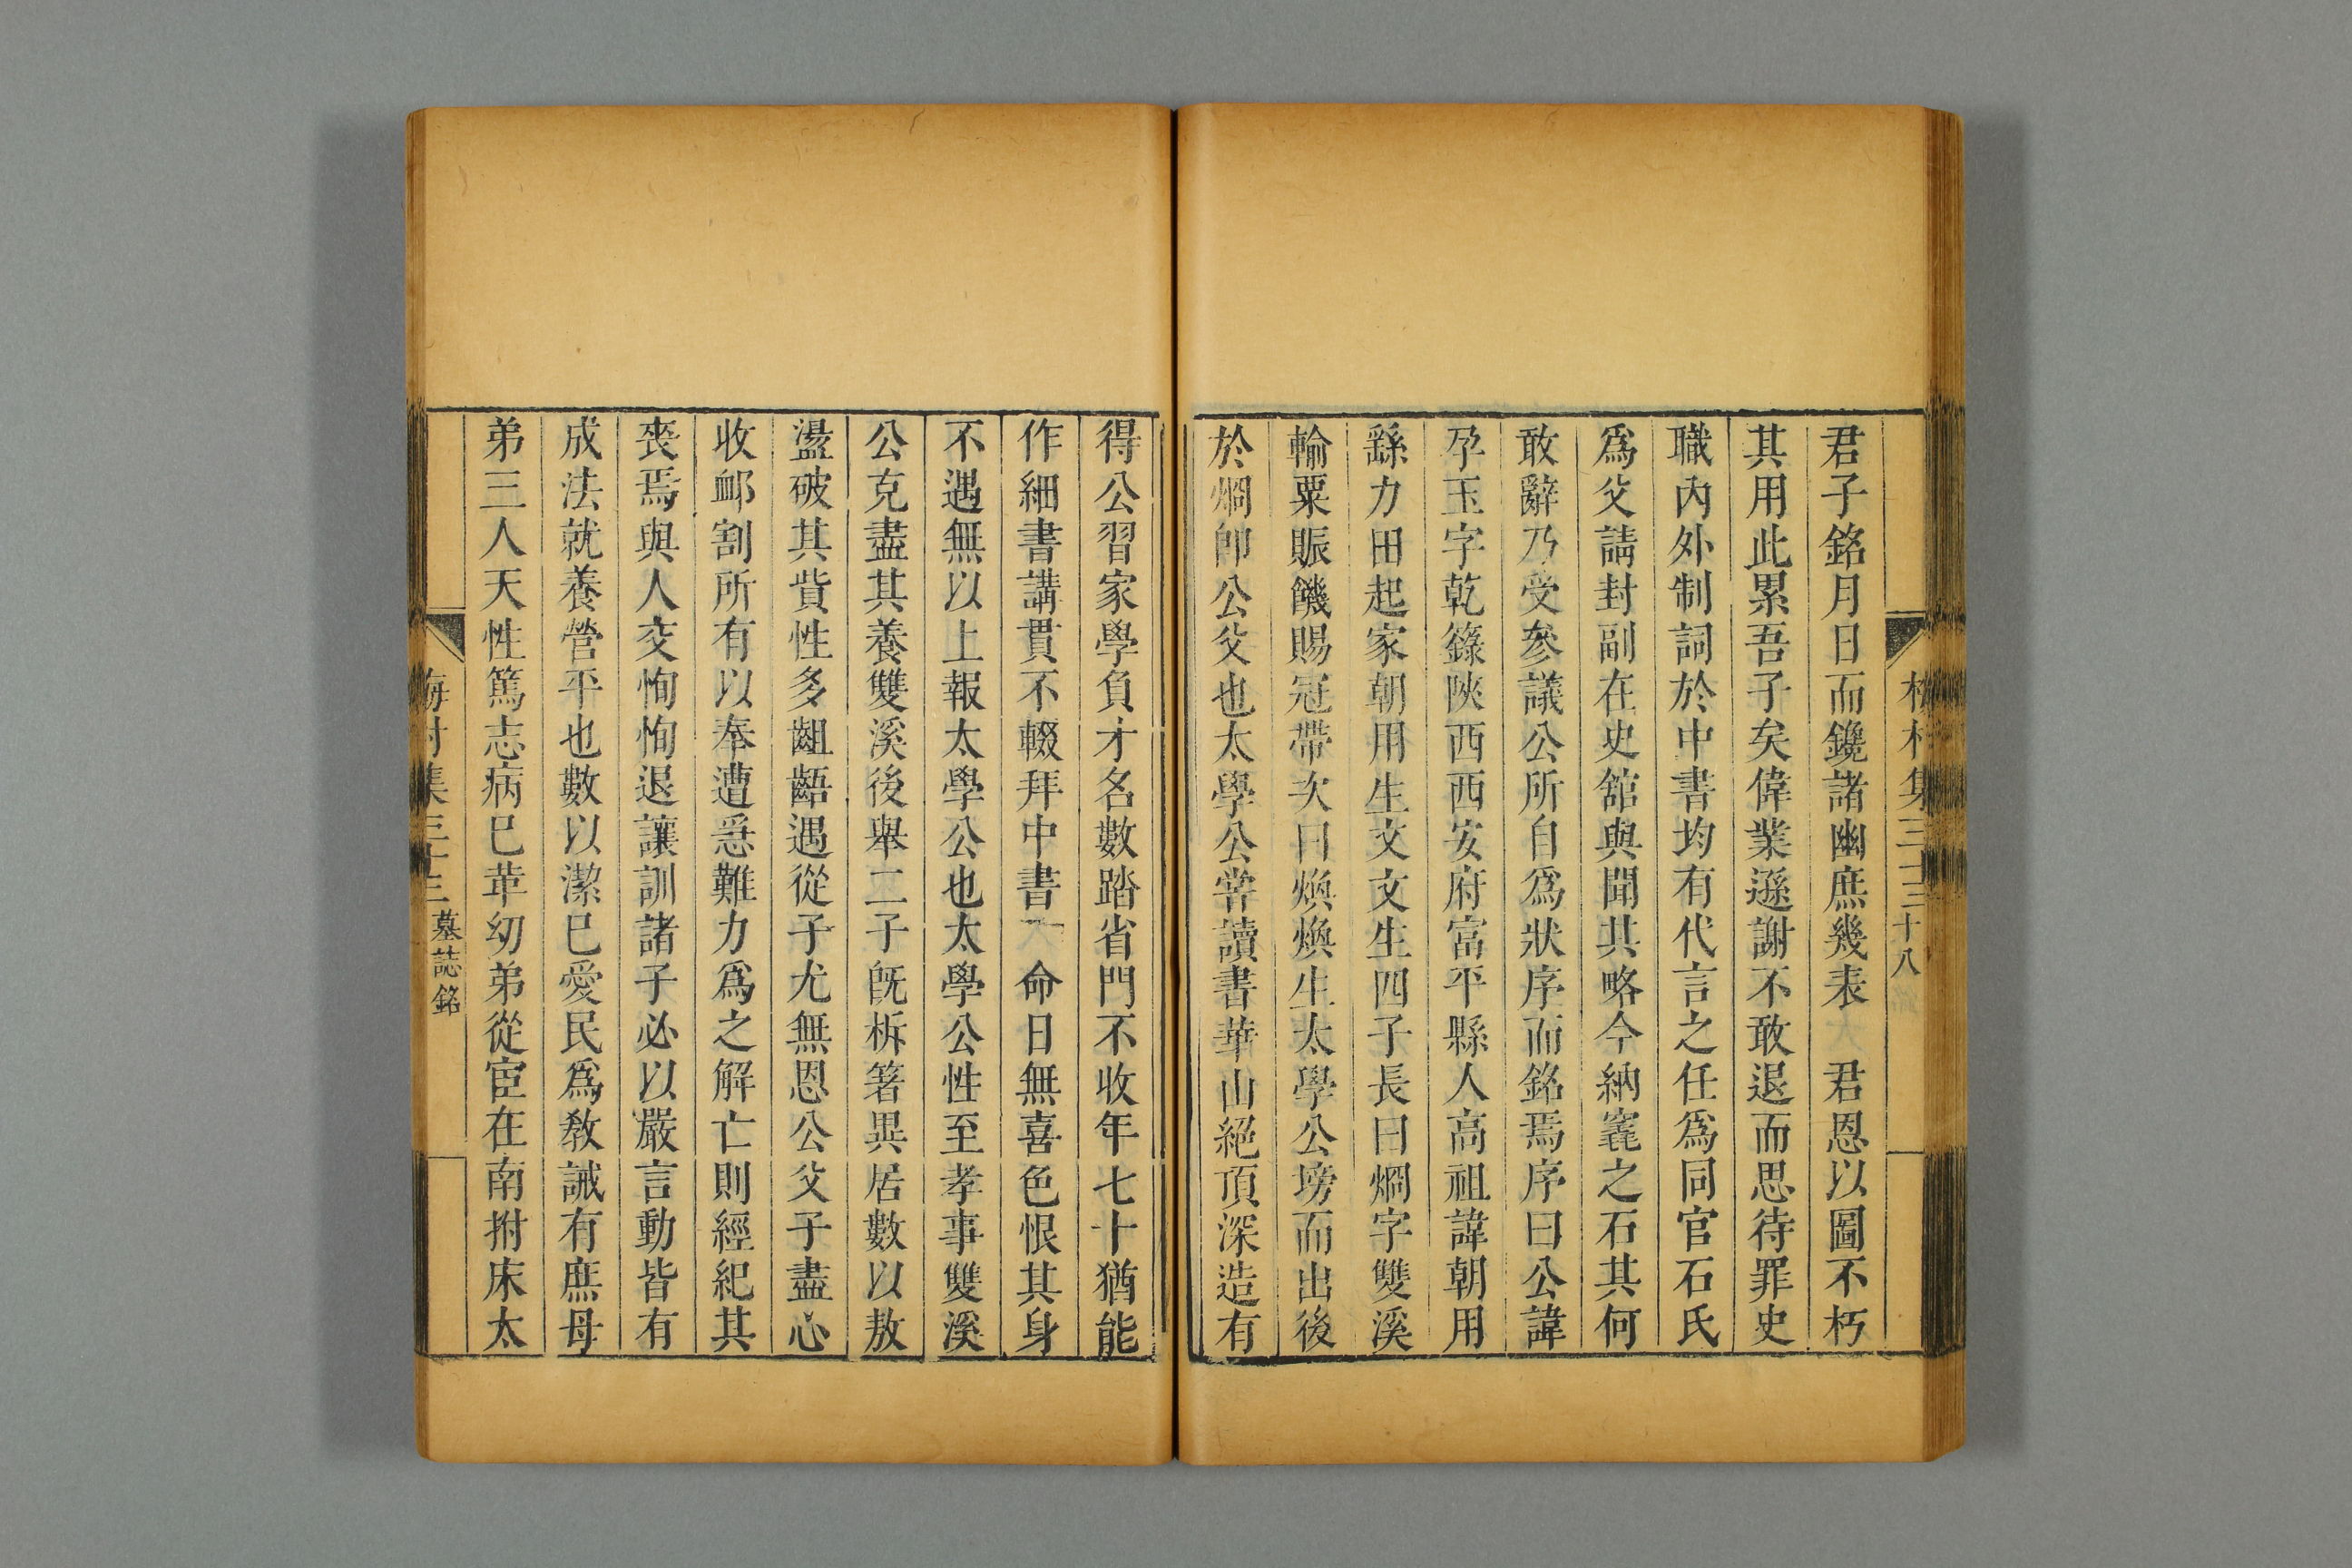 集三十三 十八
君子銘月日而鑱諸幽庶幾表 君恩以圖不朽
其用此累吾子矣偉業遜謝不敢退而思待罪史
職內外制詞於中書均有代言之任爲同官石氏
爲父請封副在史舘與聞其略今納竁之石其何
敢辭乃受參議公所自爲狀序而銘焉序曰公諱
孕玉字乾籙陝西西安府富平縣人高祖諱朝用
繇力田起家朝用生文文生四子長曰烱字雙溪
輸粟賑饑賜冠帶次曰煥煥生太學公塝而出後
於烱卽公父也太學公甞讀書華山絕頂深造有
得公習家學負才名數踏省門不收年七十猶能
作細書講貫不輟拜中書 命日無喜色恨其身
不遇無以上報太學公也太學公性至孝事雙溪
公克盡其養雙溪後舉二子旣柝箸異居數以敖
盪破其貲性多齟齬遇從子尤無恩公父子盡心
收䘏割所有以奉遭急難力爲之解亡則經紀其
喪焉與人交恂恂退讓訓諸子必以嚴言動皆有
成法就養營平也數以潔已愛民爲敎誡有庶母
弟三人天性篤志病已革㓜弟從宦在南拊床太
村集三十三 墓誌銘